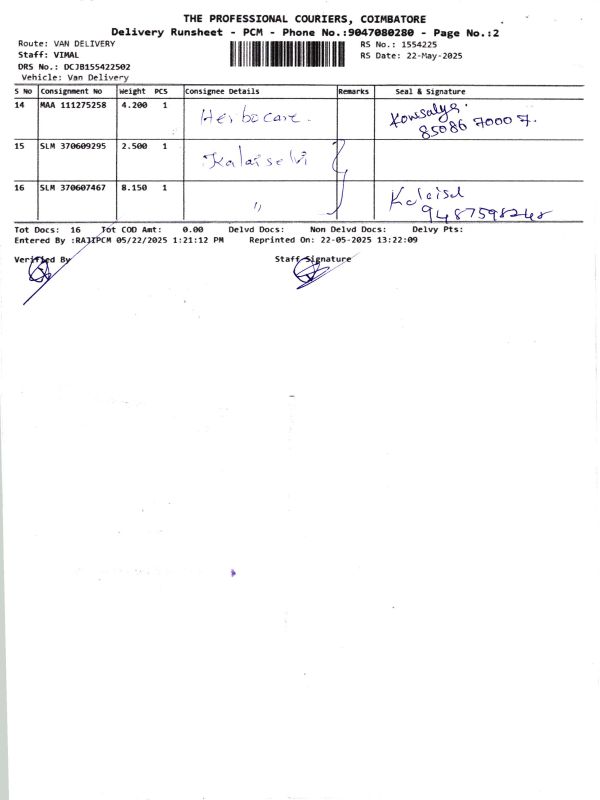 THE PROFESSIONAL COURIERS, COIMBATORE
Delivery Runsheet - PCM - Phone No.:9047080280 - Page No.:2
Route: VAN DELIVERY RS No.: 1554225
Staff: VIMAL RS Date: 22-May-2025
DRS No.: DCJB155422502
Vehicle: Van Delivery
S No Consignment No Weight PCS Consignee Details Remarks Seal & Signature
14 MAA 111275258 4.200 1 Herbocare. Kowsalya.
85086 70007.
15 SLM 370609295 2.500 1 Kalaiselvi
16 SLM 370607467 8.150 1 " Kalaisel
9487598248
Tot Docs: 16 Tot COD Amt: 0.00 Delvd Docs: Non Delvd Docs: Delvy Pts:
Entered By :RAJIPCM 05/22/2025 1:21:12 PM Reprinted On: 22-05-2025 13:22:09
Verified By Staff Signature